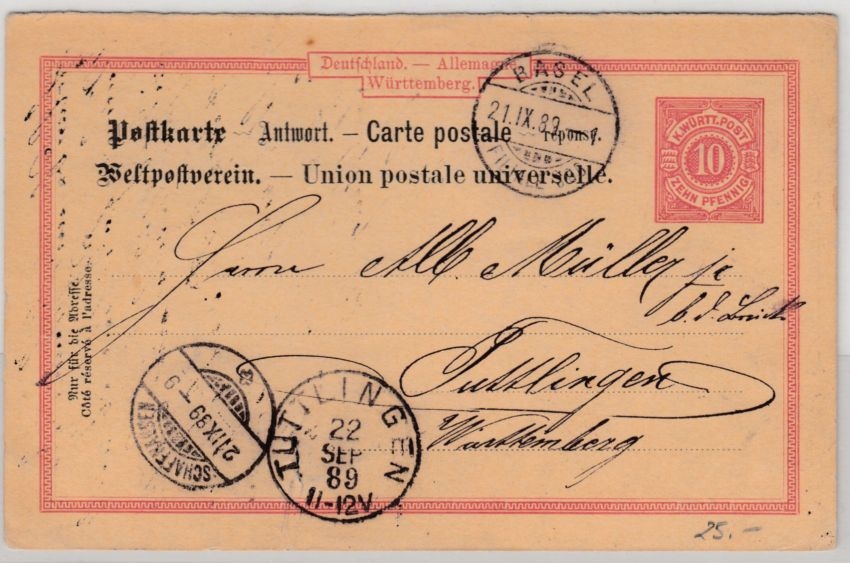 Deutschland. — Allemagne.
Württemberg.
Postkarte — Antwort. — Carte postale — réponse.
Weltpostverein. — Union postale universelle.
K. WÜRTT. POST
10
ZEHN PFENNIG
BASEL
21.IX.89
Herrn Alb Müller jr
b. d. Brücke
Tuttlingen
Württemberg
Nur für die Adresse.
Côté réservé à l'adresse.
SCHAFFHAUSEN
21.IX.89
TUTTLINGEN
22
SEP
89
11-12V
25.-